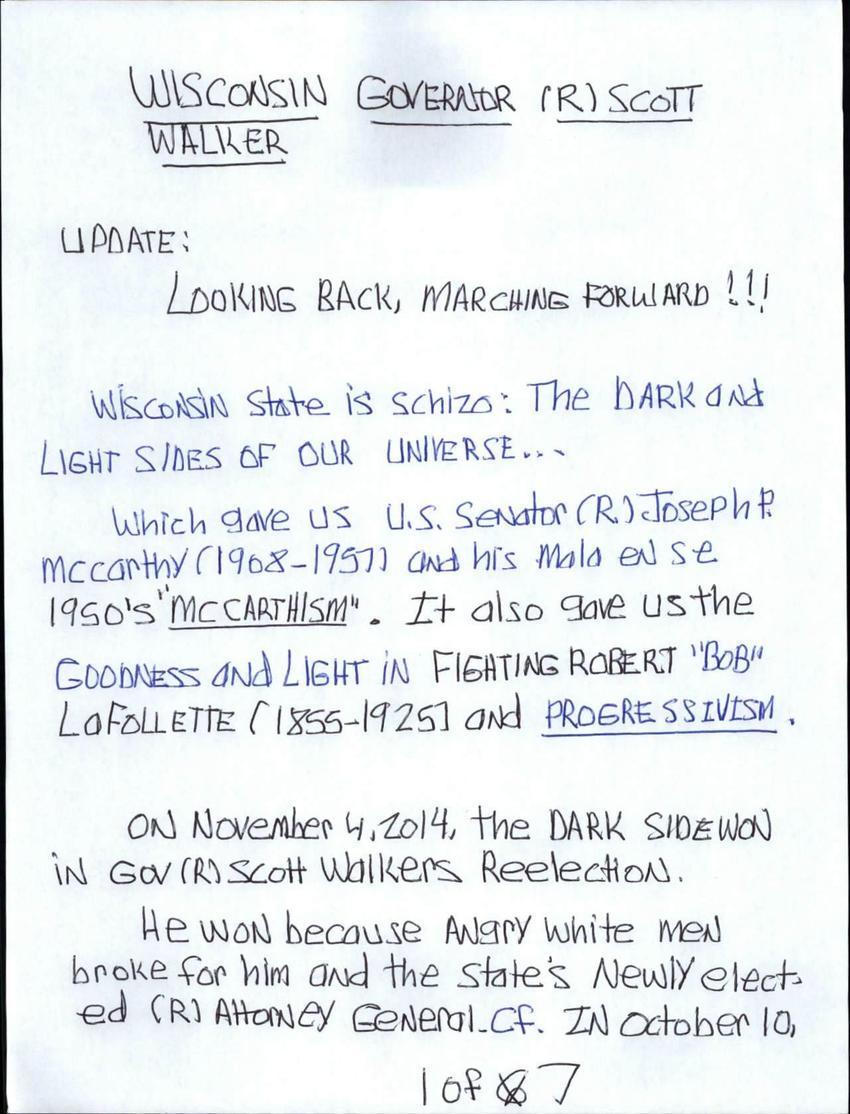 WISCONSIN GOVERNOR (R) SCOTT
WALKER
UPDATE:
LOOKING BACK, MARCHING FORWARD!!!
WISCONSIN State is schizo: The DARK and
LIGHT SIDES OF OUR UNIVERSE...
Which gave us U.S. Senator (R.) Joseph P.
McCarthy (1908-1957) and his Mala en se
1950's "MCCARTHISM". It also gave us the
GOODNESS AND LIGHT IN FIGHTING ROBERT "BOB"
LaFOLLETTE (1855-1925) and PROGRESSIVISM.
ON November 4, 2014, the DARK SIDE WON
in Gov (R) Scott Walkers Reelection.
He won because Angry white men
broke for him and the state's Newly elect-
ed (R) Attorney General. Cf. IN October 10,
1 of 7